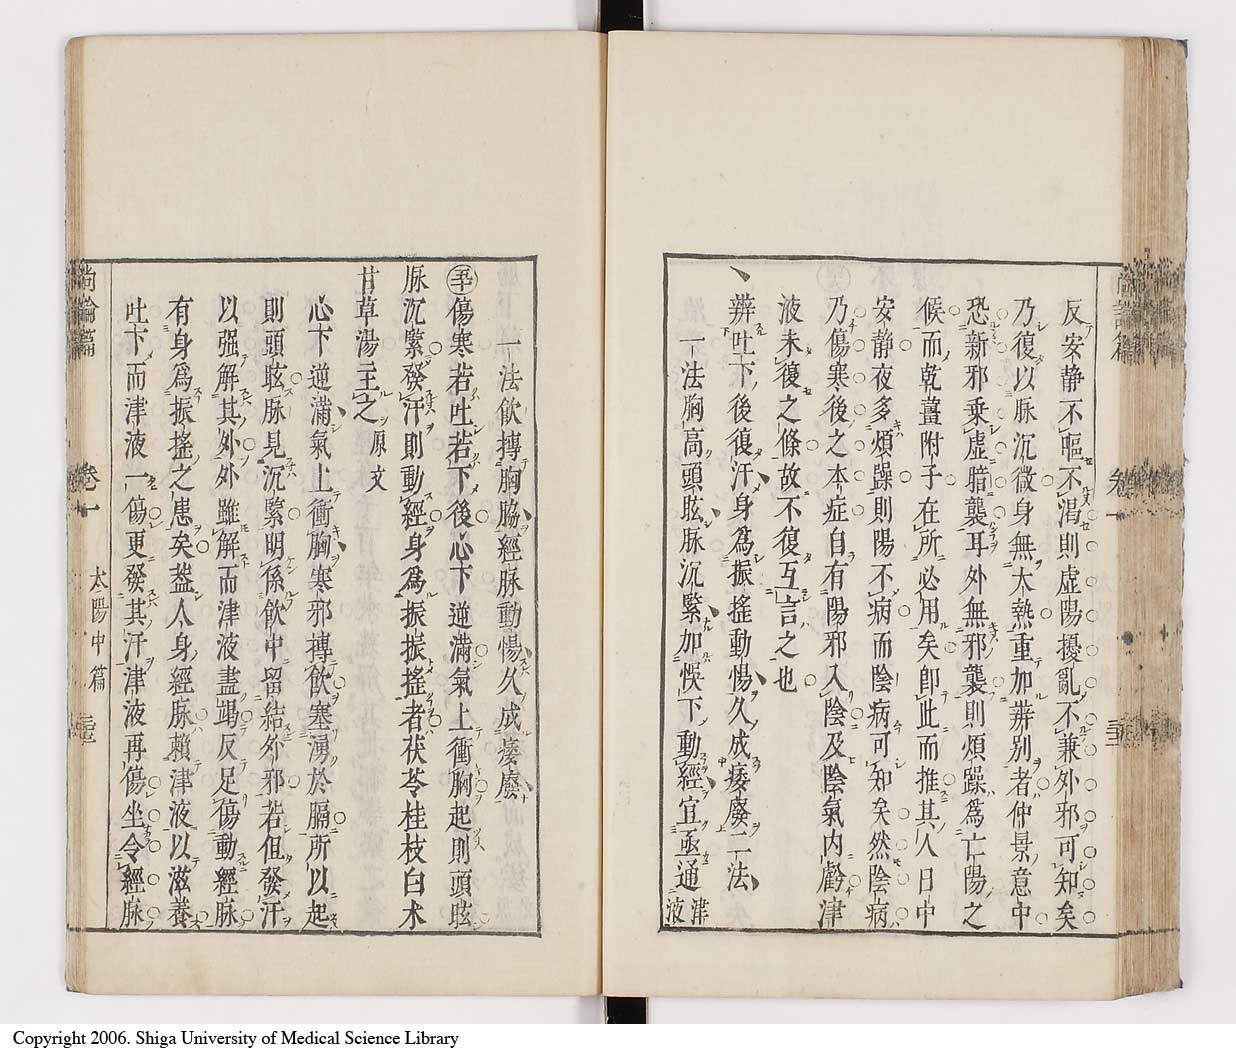 反安靜不嘔不渴則虛陽擾亂不兼外邪可知矣
乃復以脉沉微身無大熱重加辨別者仲景意中
恐新邪乘虛暗襲耳外無邪襲則煩躁爲亡陽之
候而乾薑附子在所必用矣即此而推其人日中
安靜夜多煩躁則陽不病而陰病可知矣然陰病
乃傷寒後之本症自有陽邪入陰及陰氣內虧津
液未復之條故不復互言之也
辨吐下後復汗身爲振搖動惕久成痿廢二法
一法胸高頭眩脉沉緊加悞下動經宜亟通津液
卷一
一法飮摶胸脇經脉動惕久成痿廢
傷寒若吐若下後心下逆滿氣上衝胸起則頭眩
脉沉緊發汗則動經身爲振振搖者茯苓桂枝白朮
甘草湯主之原文
心下逆滿氣上衝胸寒邪摶飮塞湧於膈所以起
則頭眩脉見沉緊明係飮中留結外邪若但發汗
以强解其外外雖解而津液盡竭反足傷動經脉
有身爲振搖之患矣蓋人身經脉賴津液以滋養
吐下而津液一傷更發其汗津液再傷坐令經脉
尚論篇 卷一 太陽中篇
Copyright 2006. Shiga University of Medical Science Library